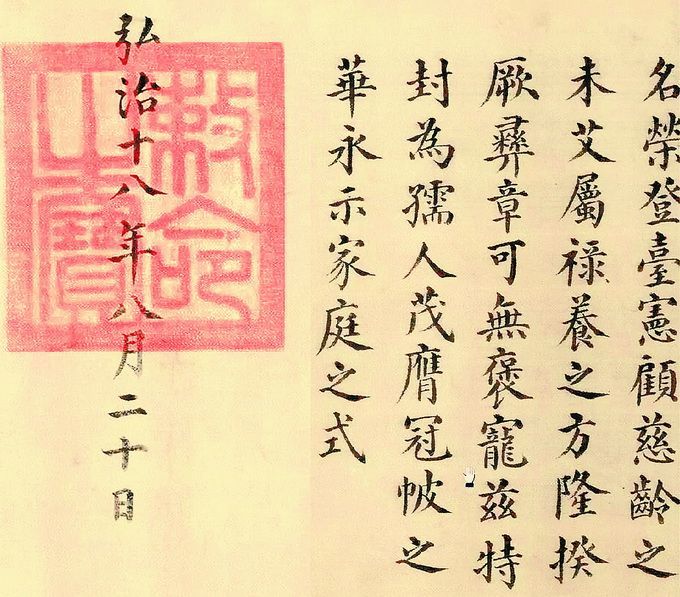 名榮登臺憲顧慈齡之
未艾屬祿養之方隆揆
厥彞章可無褒寵茲特
封為孺人茂膺冠帔之
華永示家庭之式
弘治十八年八月二十日
敕命之寶